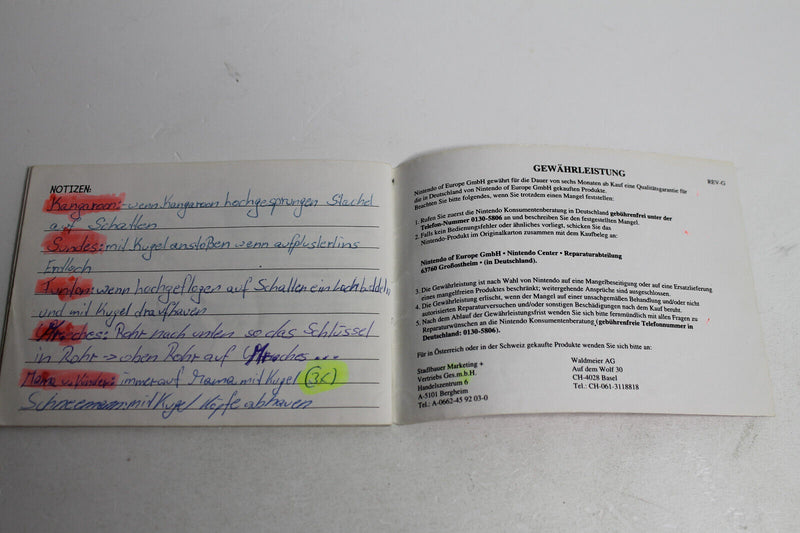 NOTIZEN:
Kangaroon:-wenn Kangaroon hochgesprungen Stachel
auf Schatten
mit Kugel anstoßen wenn aufplustert ins
Erdloch
wenn hochgeflogen auf Schatten ein Loch buddeln
und mit Kugel draufhauen
Rohr nach unten so das Schlüssel
in Rohr → oben Rohr auf
Mama u. Kinder: immer auf Mama mit Kugel (3x)
Schneemann: mit Kugel Köpfe abhauen
GEWÄHRLEISTUNG
REV-G
Nintendo of Europe GmbH gewährt für die Dauer von sechs Monaten ab Kauf eine Qualitätsgarantie für
die in Deutschland von Nintendo of Europe GmbH gekauften Produkte.
Beachten Sie bitte folgendes, wenn Sie trotzdem einen Mangel feststellen:
1. Rufen Sie zuerst die Nintendo Konsumentenberatung in Deutschland gebührenfrei unter der
Telefon-Nummer 0130-5806 an und beschreiben Sie den festgestellten Mangel.
2. Falls kein Bedienungsfehler oder ähnliches vorliegt, schicken Sie das
Nintendo-Produkt im Originalkarton zusammen mit dem Kaufbeleg an:
Nintendo of Europe GmbH • Nintendo Center • Reparaturabteilung
63760 Großostheim • (in Deutschland).
3. Die Gewährleistung ist nach Wahl von Nintendo auf eine Mangelbeseitigung oder auf eine Ersatzlieferung
eines mangelfreien Produktes beschränkt; weitergehende Ansprüche sind ausgeschlossen.
4. Die Gewährleistung erlischt, wenn der Mangel auf einer unsachgemäßen Behandlung und/oder nicht
autorisierten Reparaturversuchen und/oder sonstigen Beschädigungen nach dem Kauf beruht.
5. Nach dem Ablauf der Gewährleistungsfrist wenden Sie sich bitte fernmündlich mit allen Fragen zu
Reparaturwünschen an die Nintendo Konsumentenberatung (gebührenfreie Telefonnummer in
Deutschland: 0130-5806).
Für in Österreich oder in der Schweiz gekaufte Produkte wenden Sie sich bitte an:
Stadlbauer Marketing +
Vertriebs Ges.m.b.H.
Handelszentrum 6
A-5101 Bergheim
Tel.: A-0662-45 92 03-0
Waldmeier AG
Auf dem Wolf 30
CH-4028 Basel
Tel.: CH-061-3118818